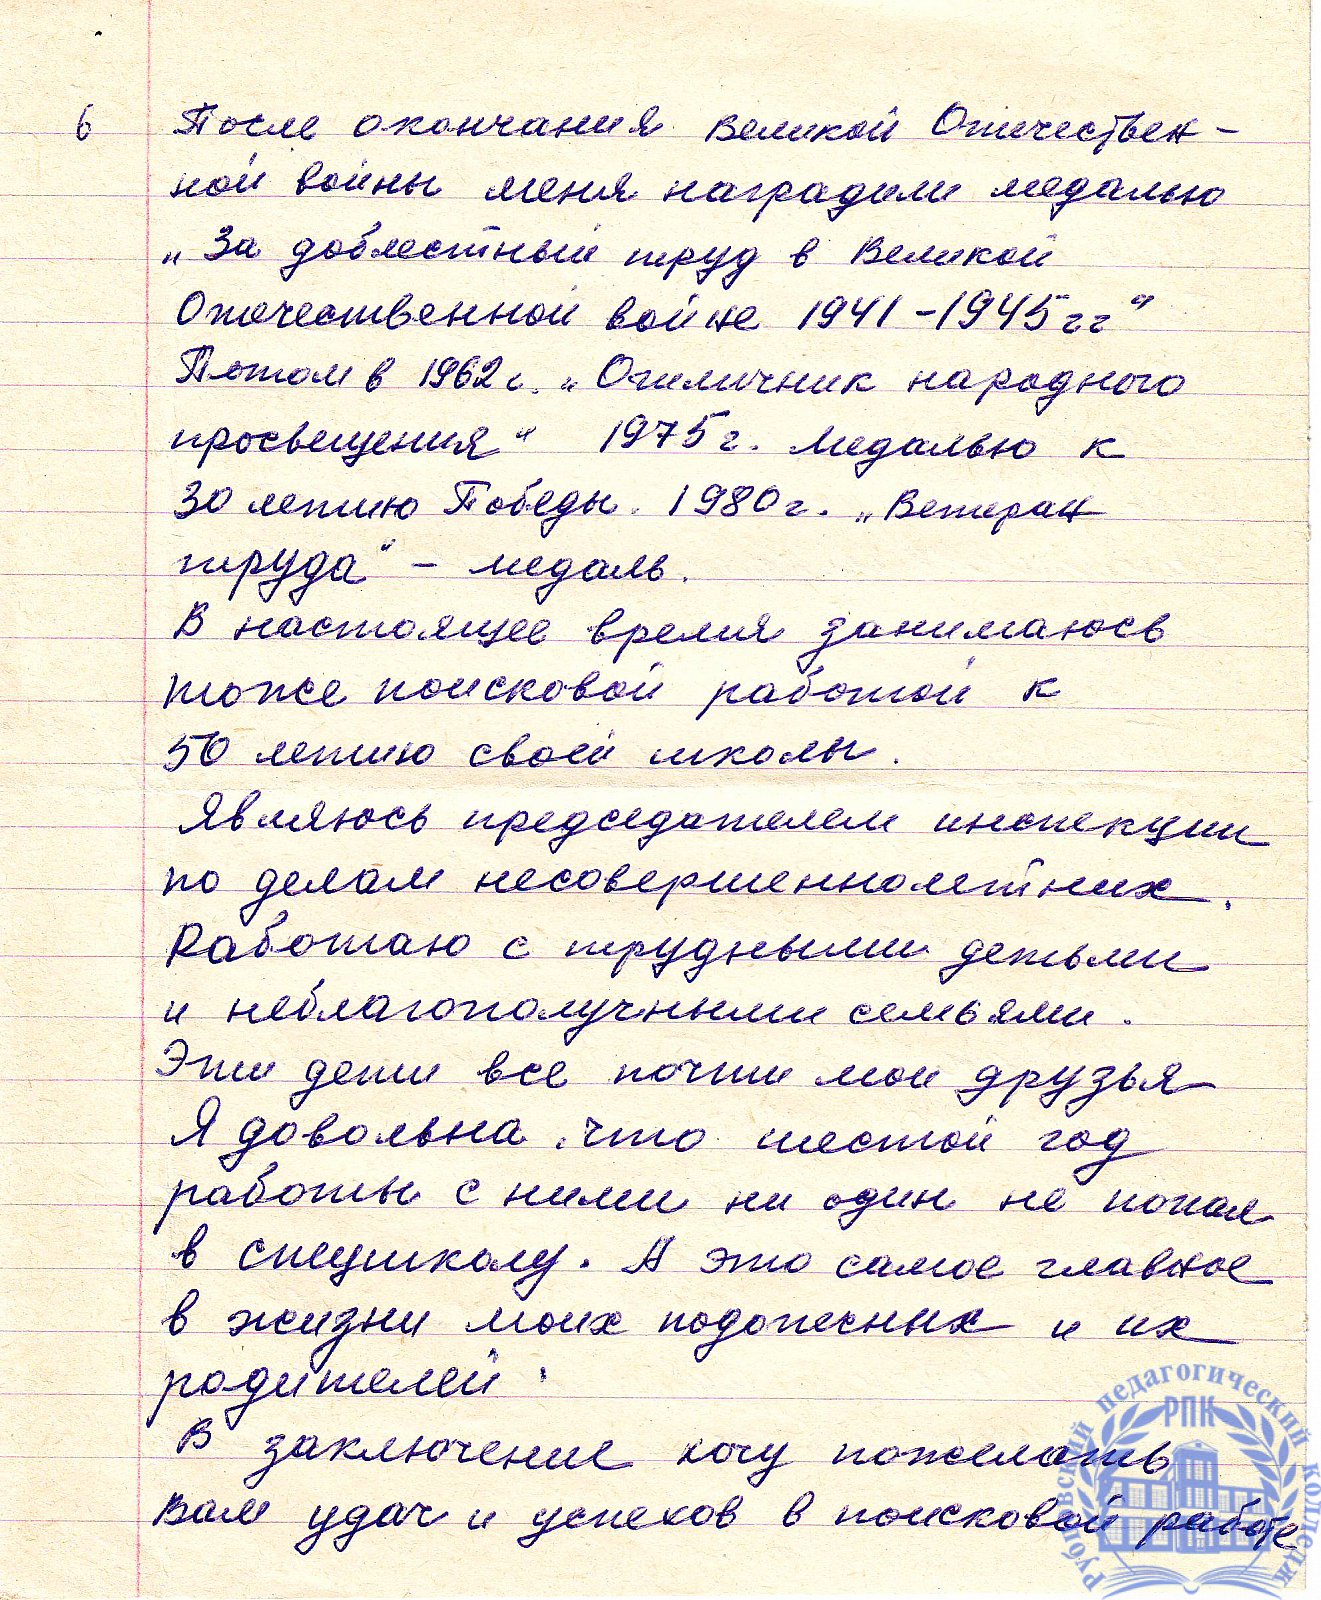 6 После окончания Великой Отечествен-
ной войны меня наградили медалью
„За доблестный труд в Великой
Отечественной войне 1941-1945гг“
Потом в 1962г. „Отличник народного
просвещения“ 1975г. Медалью к
30 летию Победы. 1980г. „Ветеран
труда“ – медаль.
В настоящее время занимаюсь
тоже поисковой работой к
50 летию своей школы.
Являюсь председателем инспекции
по делам несовершеннолетних.
Работаю с трудными детьми
и неблагополучными семьями.
Эти дети все почти мои друзья
Я довольна, что шестой год
работы с ними ни один не попал
в спецшколу. А это самое главное
в жизни моих подопечных и их
родителей.
В заключение хочу пожелать
Вам удач и успехов в поисковой работе
Рубцовский педагогический колледж
РПК